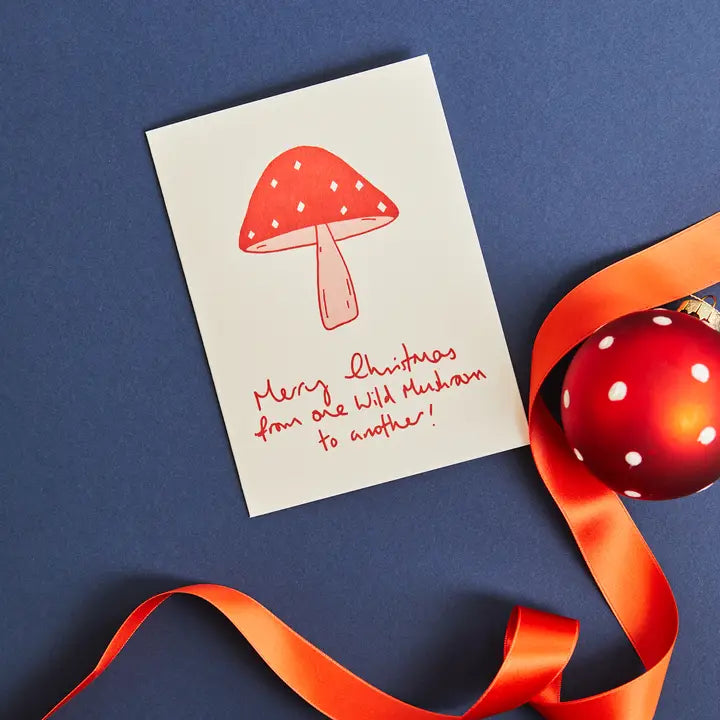 Merry Christmas
from one Wild Mushroom
to another!